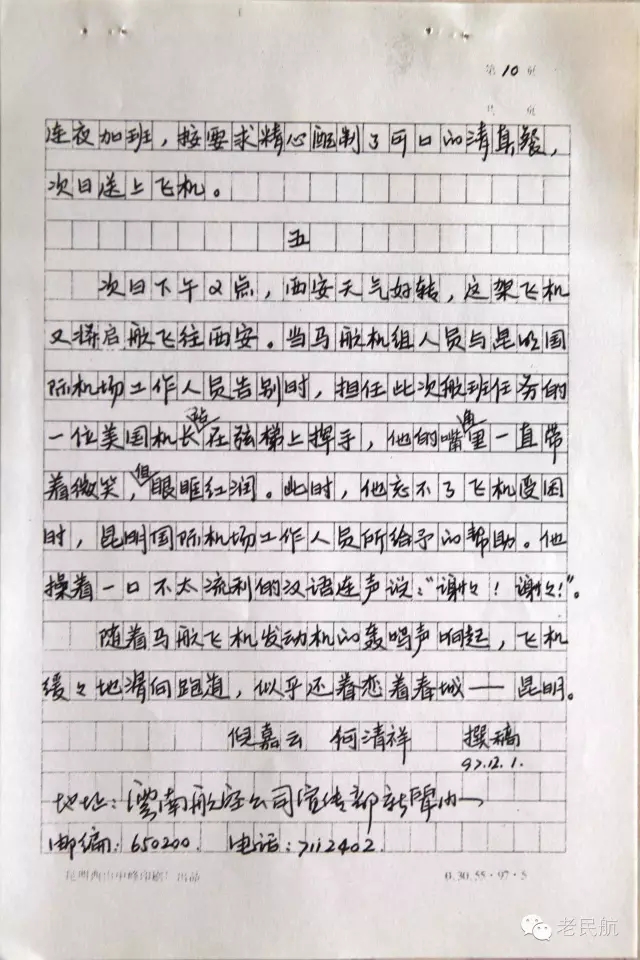 第 10 页
共 页
连夜加班，按要求精心配制了可口的清真餐，
次日送上飞机。
五
次日下午2点，西安天气好转，这架飞机
又将启航飞往西安。当马航机组人员与昆明国
际机场工作人员告别时，担任此次航班任务的
一位美国机长站在弦梯上挥手，他的嘴角里一直带
着微笑，但眼眶红润。此时，他忘不了飞机受困
时，昆明国际机场工作人员所给予的帮助。他
操着一口不太流利的汉语连声说：“谢々！谢々！”。
随着马航飞机发动机的轰鸣声响起，飞机
缓々地滑向跑道，似乎还着恋着春城——昆明。
倪嘉云 何清祥 撰稿
97.12.1.
地址：云南航空公司宣传部新闻办
邮编：650200. 电话：7112402.
0.30.55·97·5
老民航